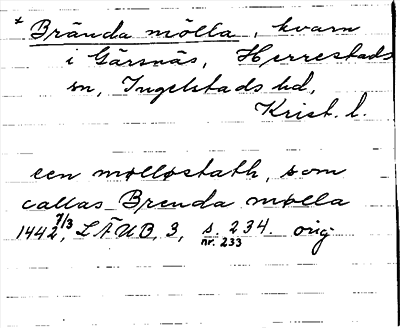 * Brända mölla, kvarn
i Gärsnäs, Herrestads
sn, Ingelstads hd,
Krist. l.
een mollostath, som
callas Brenda mølla
1442 7/3, LÄUB, 3, s. 234. orig
nr. 233